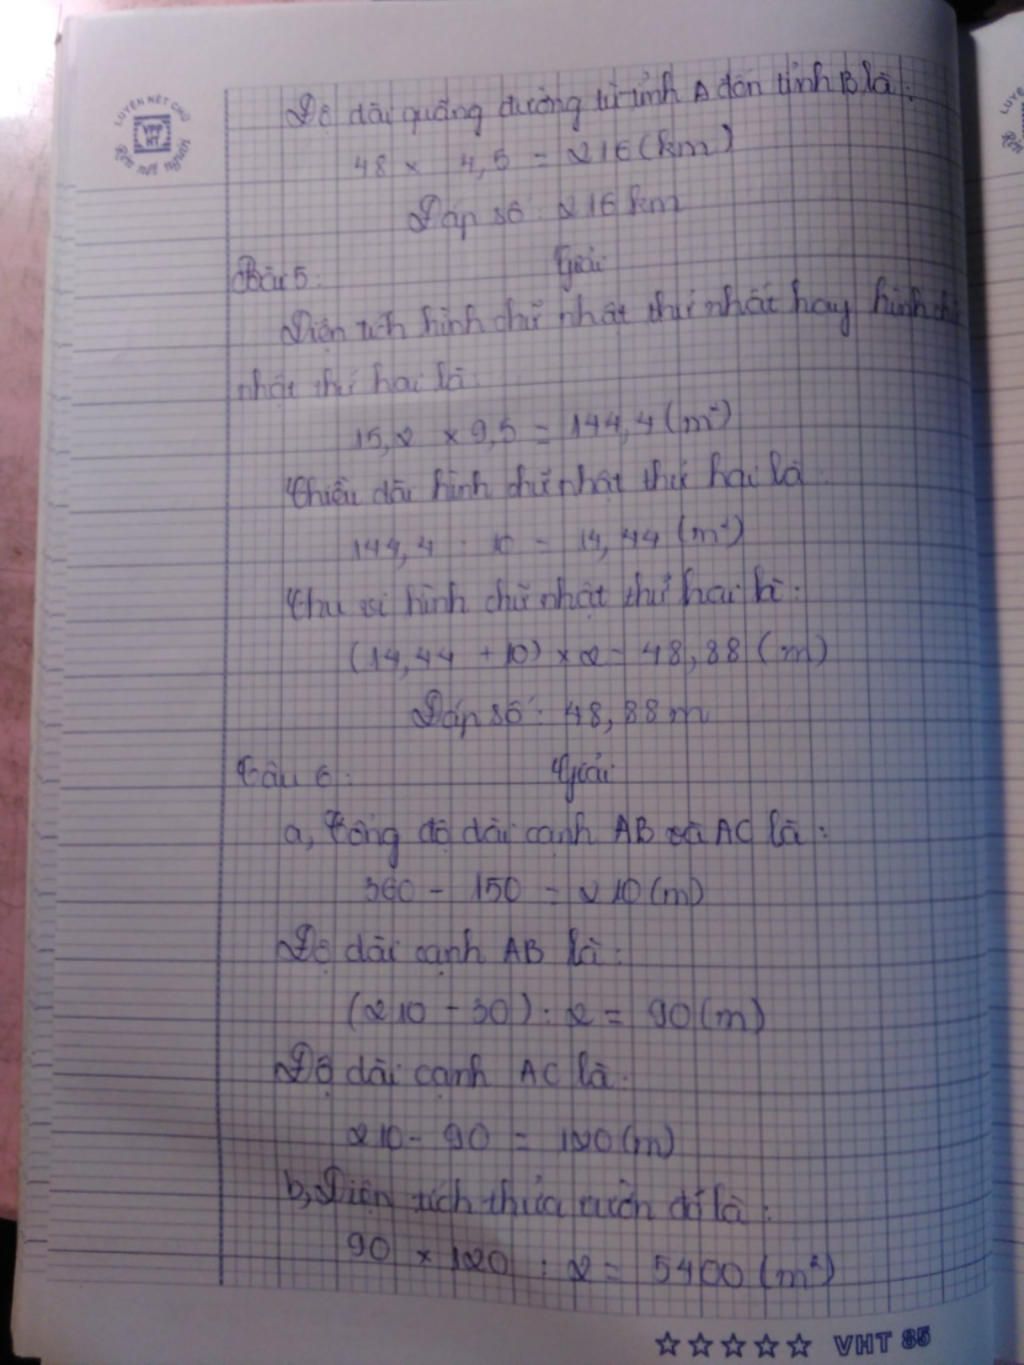 LUYỆN NÉT CHỮ
VPP
HT
Rèn nết người
Độ dài quãng đường từ tỉnh A đến tỉnh B là:
48 × 4,5 = 216 (km)
Đáp số: 216 km
Bài 5: Giải
Diện tích hình chữ nhật thứ nhất hay hình chữ
nhật thứ hai là:
15,2 × 9,5 = 144,4 (m²)
Chiều dài hình chữ nhật thứ hai là:
144,4 : 10 = 14,44 (m²)
Chu vi hình chữ nhật thứ hai là:
(14,44 + 10) × 2 = 48,88 (m)
Đáp số: 48,88 m
Câu 6: Giải
a, Tổng độ dài cạnh AB và AC là:
360 - 150 = 210 (m)
Độ dài cạnh AB là:
(210 - 30) : 2 = 90 (m)
Độ dài cạnh AC là:
210 - 90 = 120 (m)
b, Diện tích thửa vườn đó là:
90 × 120 : 2 = 5400 (m²)
VHT 85